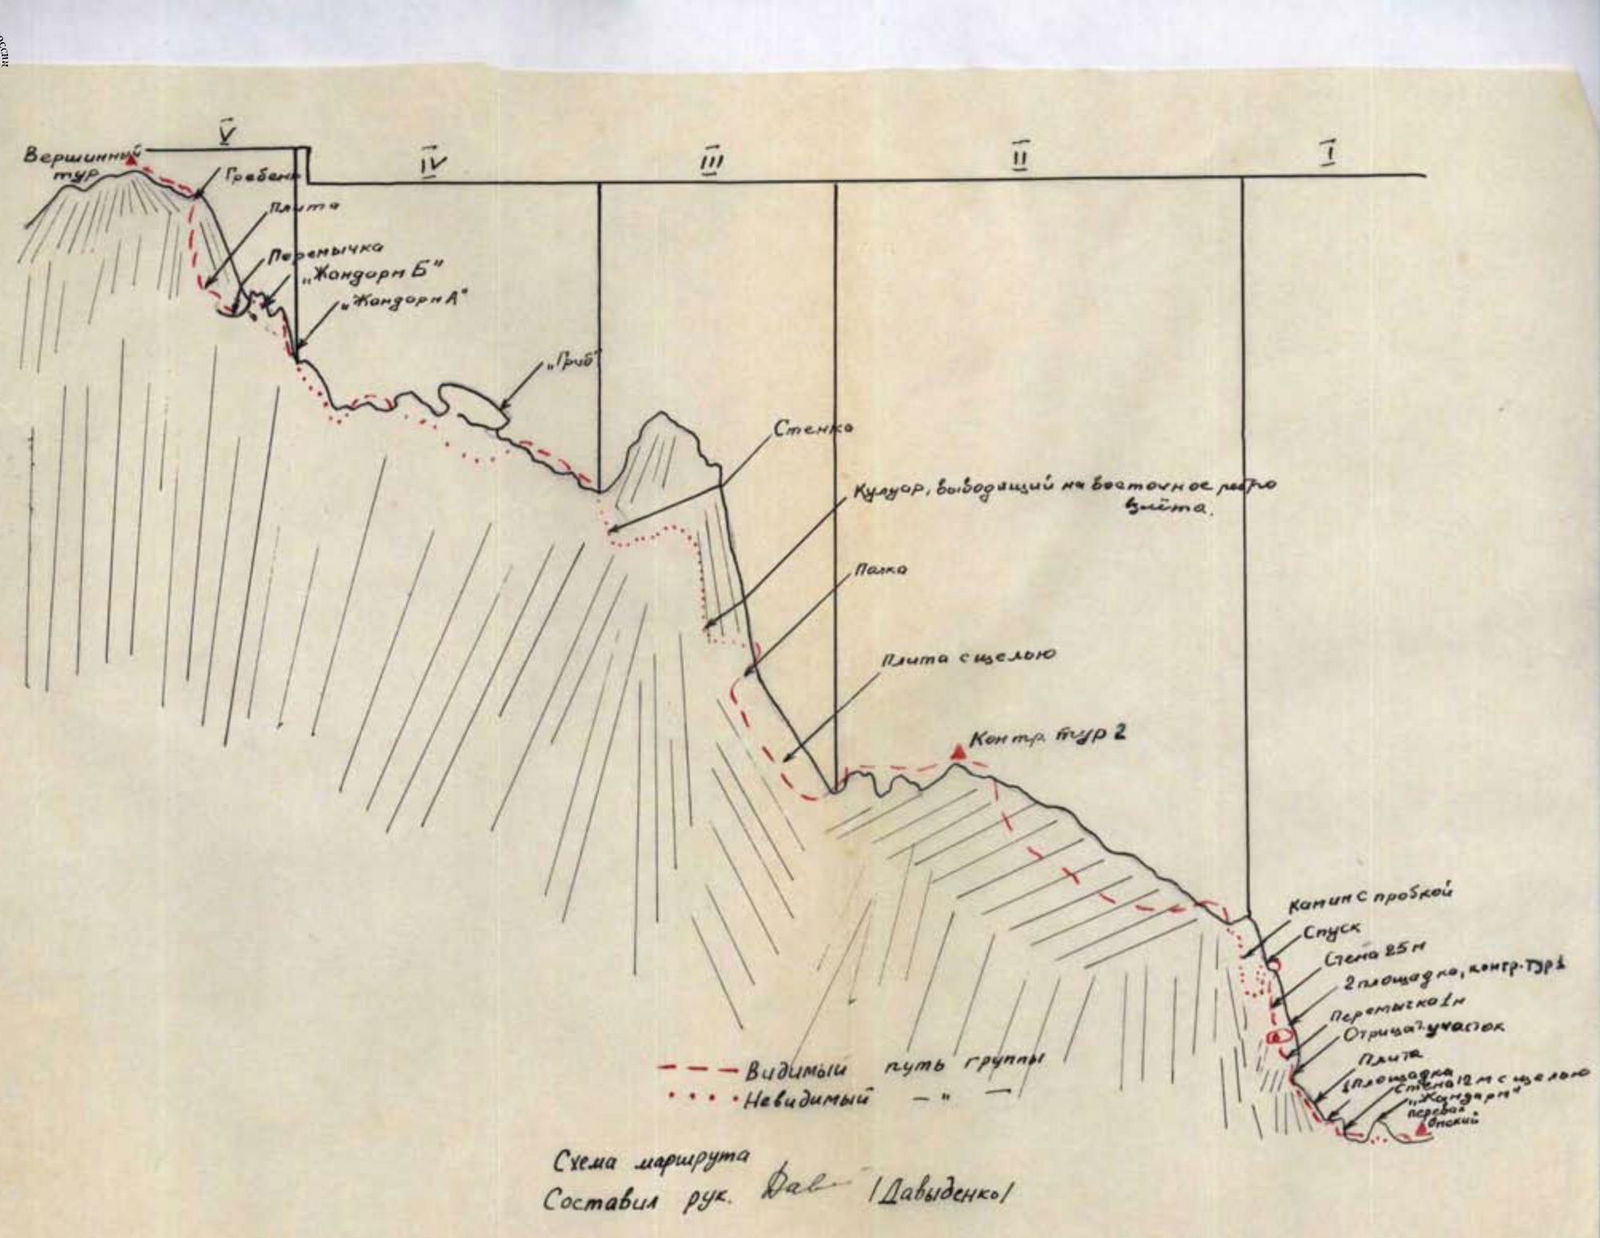 V
IV
III
II
I
Вершинный
тур
Гребень
Плита
Перемычка
„Жандарм Б"
„Жандарм А"
„Гриб"
Стенка
Кулуар, выводящий на восточное ребро
взлёта.
Полка
Плита с щелью
Контр. тур 2
Камин с пробкой
Спуск
Стена 25 м
2 площадка, контр. тур 1
Перемычка 1 м
Отрицат. участок
Плита
1 площадка
Стена 12 м с щелью
„Жандарм"
перевал
Видимый путь группы
Невидимый — " —
Схема маршрута
Составил рук. Дав /Давыденко/